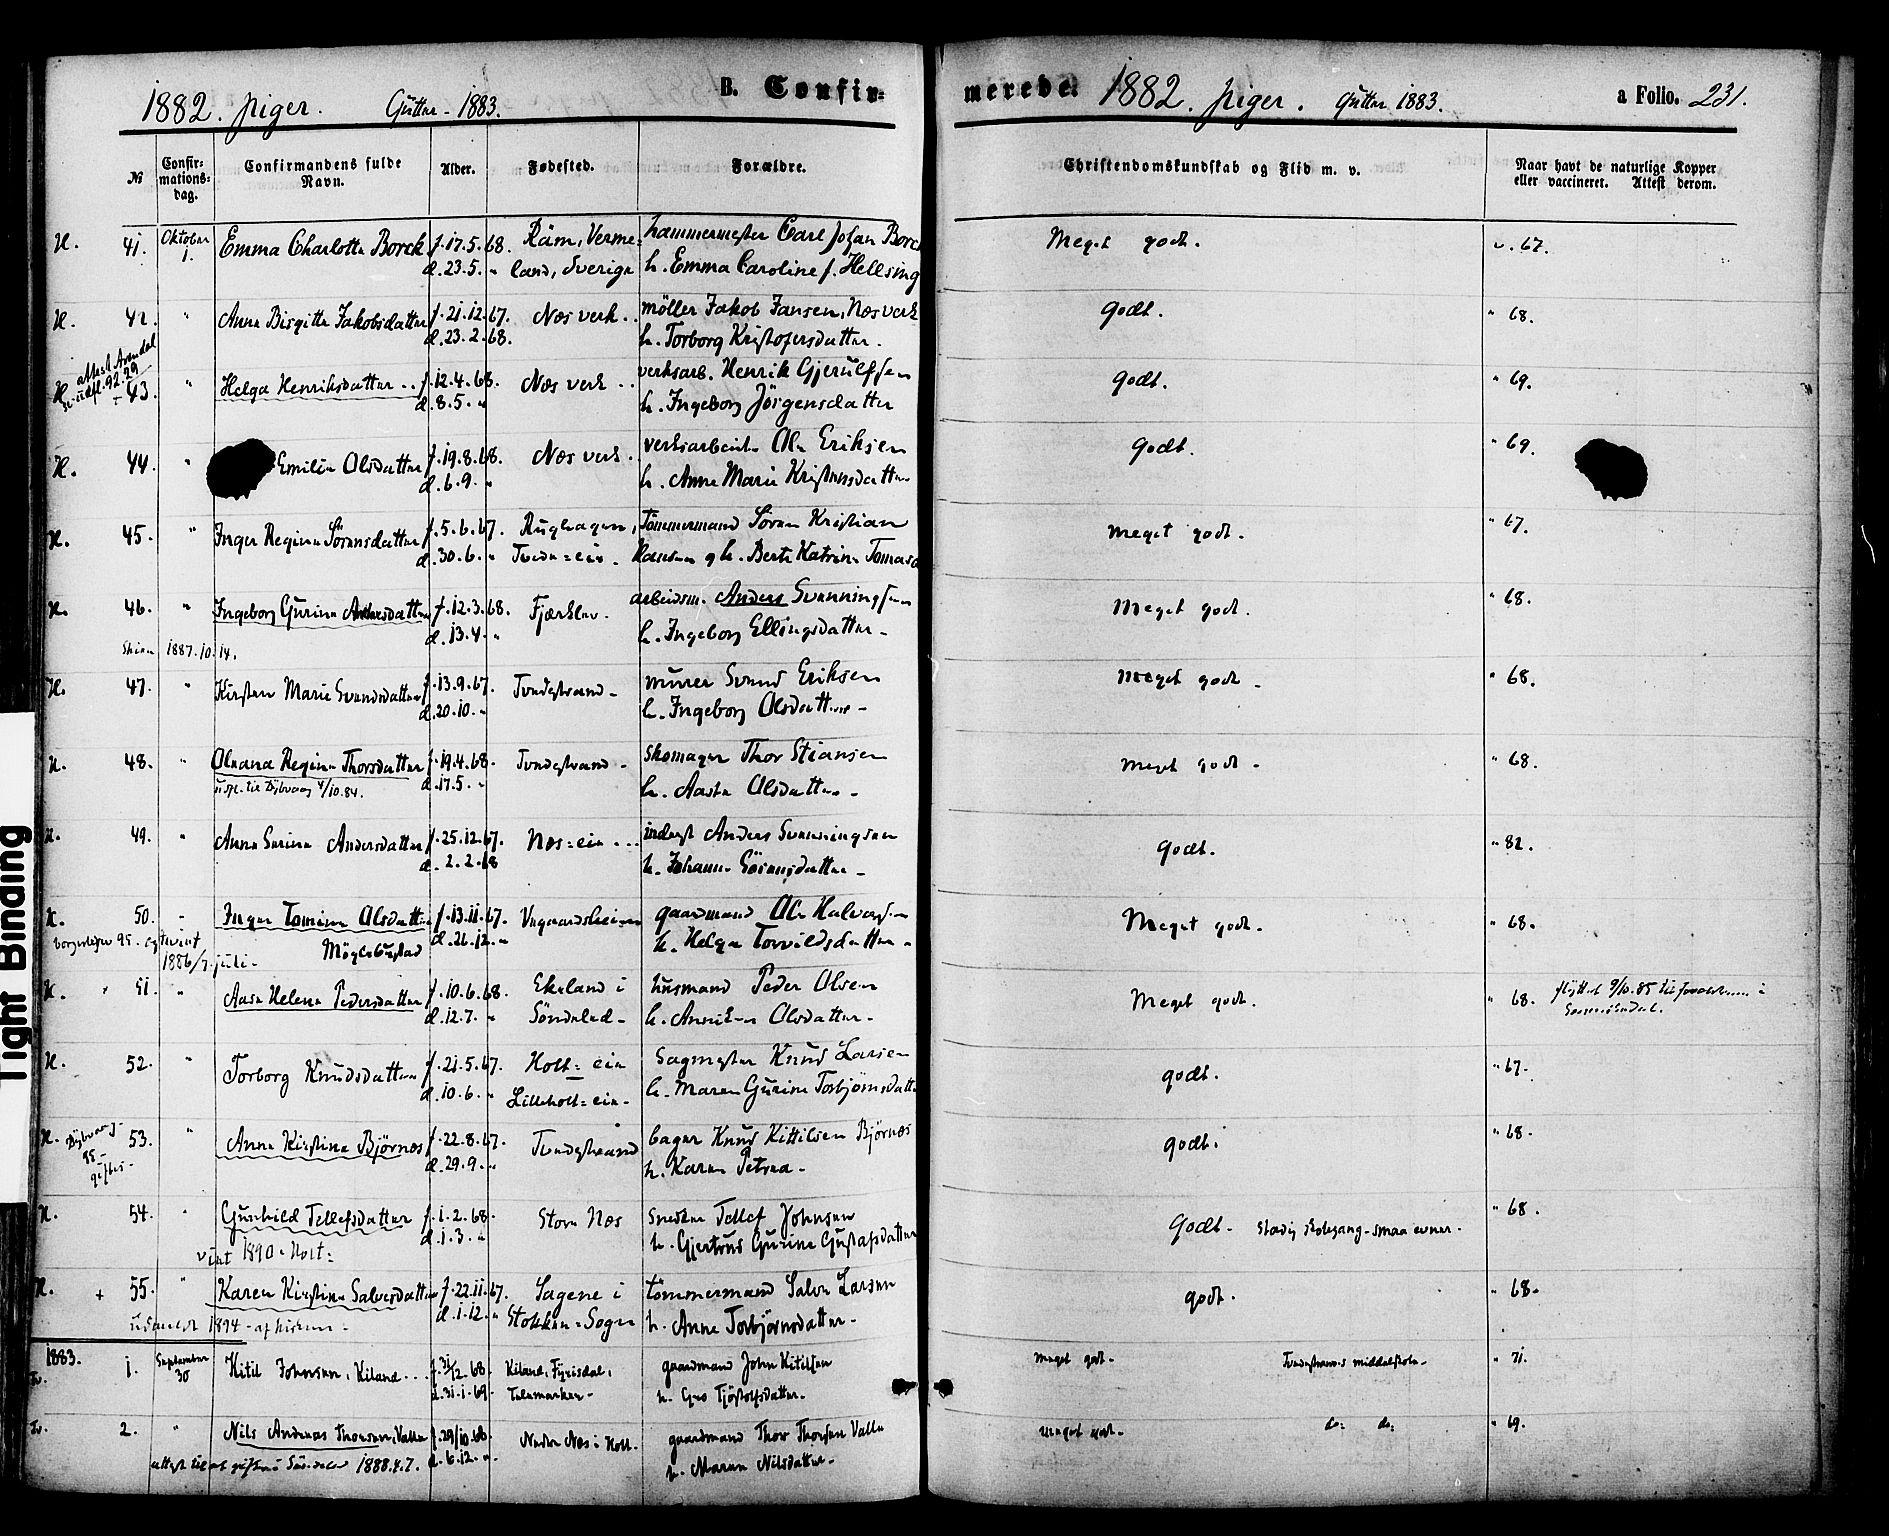 1882. piger. Gutter - 1883. B. Confir=
merede. 1882. piger. Gutter 1883. a Folio. 231.
№ Confir=mations=dag. Confirmandens fulde Navn. Alder. Fødested. Forældre. Christendomskundskab og Flid m. v. Naar havt de naturlige Kopper eller vaccineret. Attest derom.
H. 41. Oktober 1. Emma Charlotte Borck f. 17.5.68. Räm, Verme= hammermester Carl Johan Borck Meget godt. v. 67.
d. 23.5. " land, Sverige h. Emma Caroline f. Hellsing
H. 42. " Anne Birgitte Jakobsdatter f. 21.12.67. Næs verk.. möller Jakob Jansen, Næsverk Godt. " 68.
d. 23.2.68. h. Torborg Kristofersdatter.
attest Arendal
H. 43. " Helga Henriksdatter .. f. 12.4.68. Næs verk .. verksarb. Henrik Gjerulfsen Godt. " 69.
d. 8.5. " h. Ingeborg Jörgensdatter
H. 44. " Emilie Olsdatter f. 19.8.68. Næs verk. verksarbeider Ole Eriksen Godt. " 69.
d. 6.9. " h. Anne Marie Kristensdatter
H. 45. " Inger Regine Sörensdatter f. 5.6.67. Rughagen, Tömmermand Sören Kristian Meget godt. " 67.
d. 30.6. " Tvede=eie. Hansen og h. Berte Katrine Tomasd
H. 46. " Ingeborg Gurine Andersdatter f. 12.3.68. Fjærklev. arbeidsm. Anders Svenningsen Meget godt. " 68.
Skien 1887.10.14. d. 13.4. " h. Ingeborg Ellingsdatter -
H. 47. " Kirsten Marie Svendsdatter f. 13.9.67. Tvedestrand - murer Svend Eriksen Meget godt - " 68.
d. 20.10. " h. Ingeborg Olsdatter -
H. 48. " Oleana Regine Thorsdatter f. 19.4.68. Tvedestrand - Skomager Thor Stiansen Meget godt - " 68.
til Dybvaag 4/10.84. d. 17.5. " h. Aaste Olsdatter -
H. 49. " Anne Serine Andersdatter f. 25.12.67. Næs=eie ... inderst Anders Svenningsen Godt. " 82.
d. 2.2.68 h. Johanne Sörensdatter -
H. 50. " Inger Tomine Olsdatter f. 13.11.67. Vegaardsheien gaardmand Ole Halvorsen Meget godt. " 68.
1886/7. juli - Möglebustad d. 26.12. " h. Helge Torvildsdatter -
H. 51. " Aase Helene Pedersdatter f. 10.6.68. Ekeland i husmand Peder Olsen Meget godt. " 68. flyttet 9/10.85 til
d. 12.7. " Söndeled - h. Anniken Olsdatter -
H. 52. " Torborg Knudsdatter f. 21.5.67. Holt= eie Sagmester Knud Larsen godt. " 67.
d. 10.6. " Lilleholt=eie - h. Maren Gurine Torbjörnsdatter
H. Dybvaag - 53. " Anne Kirstine Björnæs f. 22.8.67. Tvedestrand bager Knud Kittilsen Björnæs godt. " 68.
95 - giftes - d. 29.9. " h. Karen Petrea -
H. 54. " Gunhild Tellefsdatter f. 1.2.68. Store Næs Snedker Tellef Johnsen Godt - Stadig skolegang - smaa evner. " 68.
1890 - Holt = d. 1.3. " h. Gjertrus Gurine Gustafsdatter
H. + 55. " Karen Kirstine Salvesdatter f. 22.11.67. Sagene i tömmermand Salve Larsen godt. " 68.
udmeldt 1894 - af kirken - d. 1.12. " Stokken=Sogn h. Anne Torbjörnsdatter -
1883. 1. September 30 Kitil Johnsen, Kiland ... f. 31/12.68. Kiland, Fyrisdal, gaardmand John Kitilsen Meget godt - Tvedestrands middelskole - " 71.
d. 31.1.69. Telemarken - h. Gro Tjöstolfsdatter.
Tv. 2. " Nils Andreas Thorsen, Valle f. 29/10.68. Nedre Næs i Holt. gaardmand Thor Thorsen Valle meget godt - do: do: " 69.
attest til at giftes i 1888.4.7. d. 6.12. " h. Maren Nilsdatter -
Tight Binding